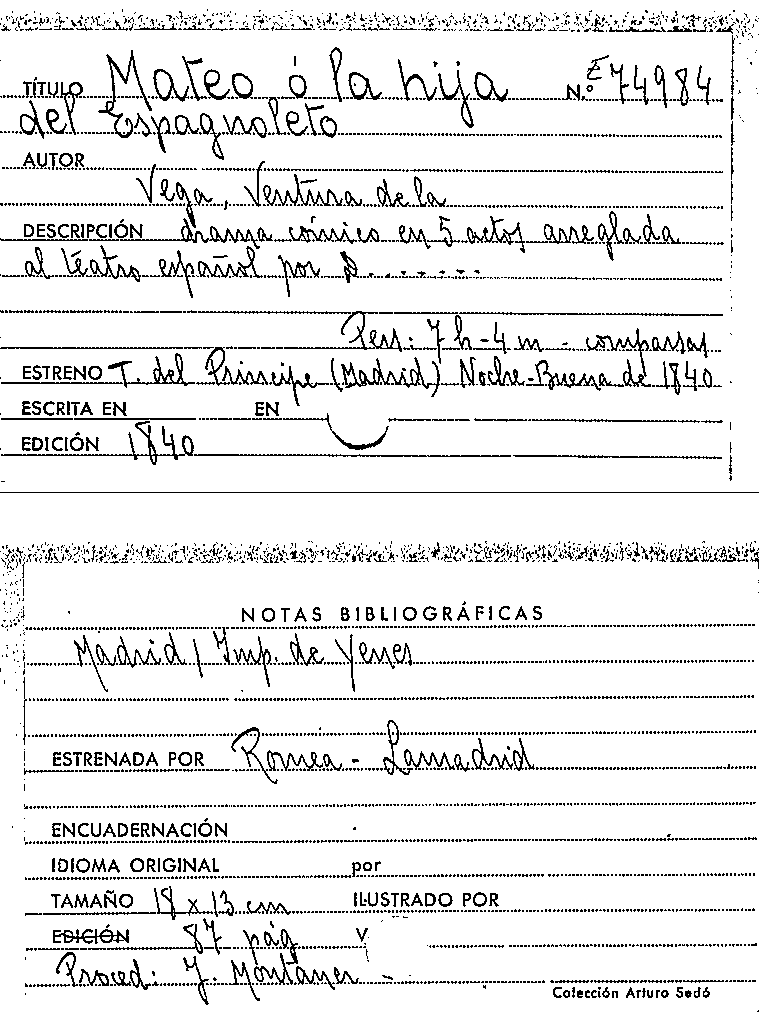 TÍTULO Mateo ó la hija N.º E 74984
del Espagnoleto
AUTOR
Vega, Ventura de la
DESCRIPCIÓN drama cómico en 5 actos arreglada
al teatro español por D. . . . . . .
Pers: 7 h - 4 m - comparsas
ESTRENO T. del Principe (Madrid) Noche-Buena de 1840
ESCRITA EN EN
EDICIÓN 1840
NOTAS BIBLIOGRÁFICAS
Madrid / Imp. de Yenes
ESTRENADA POR Romea - Lamadrid
ENCUADERNACIÓN
IDIOMA ORIGINAL por
TAMAÑO 18 x 13 cm ILUSTRADO POR
EDICIÓN 87 pág V
Proced: J. Montaner -
Colección Arturo Sedó